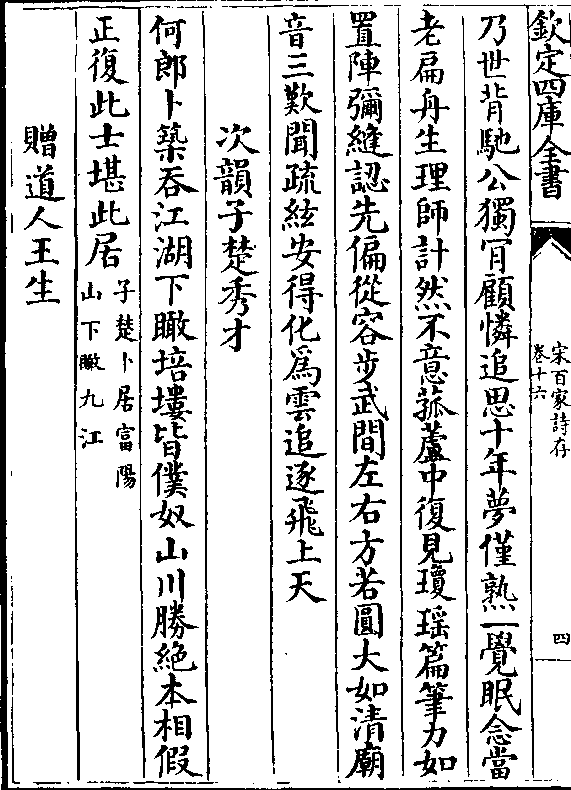 欽定四庫全書
宋百家詩存
卷十六
四
乃世背馳公獨肎顧憐追思十年夢僅熟一覺眠念當
老扁舟生理師計然不意菰蘆中復見瓊瑶篇筆力如
置陣彌縫認先偏從容步武間左右方若圓大如清廟
音三歎聞疏絃安得化為雲追逐飛上天
次韻子楚秀才
何郎卜築吞江湖下瞰培塿皆僕奴山川勝絶本相假
正復此士堪此居
子楚卜居富陽
山下瞰九江
贈道人王生